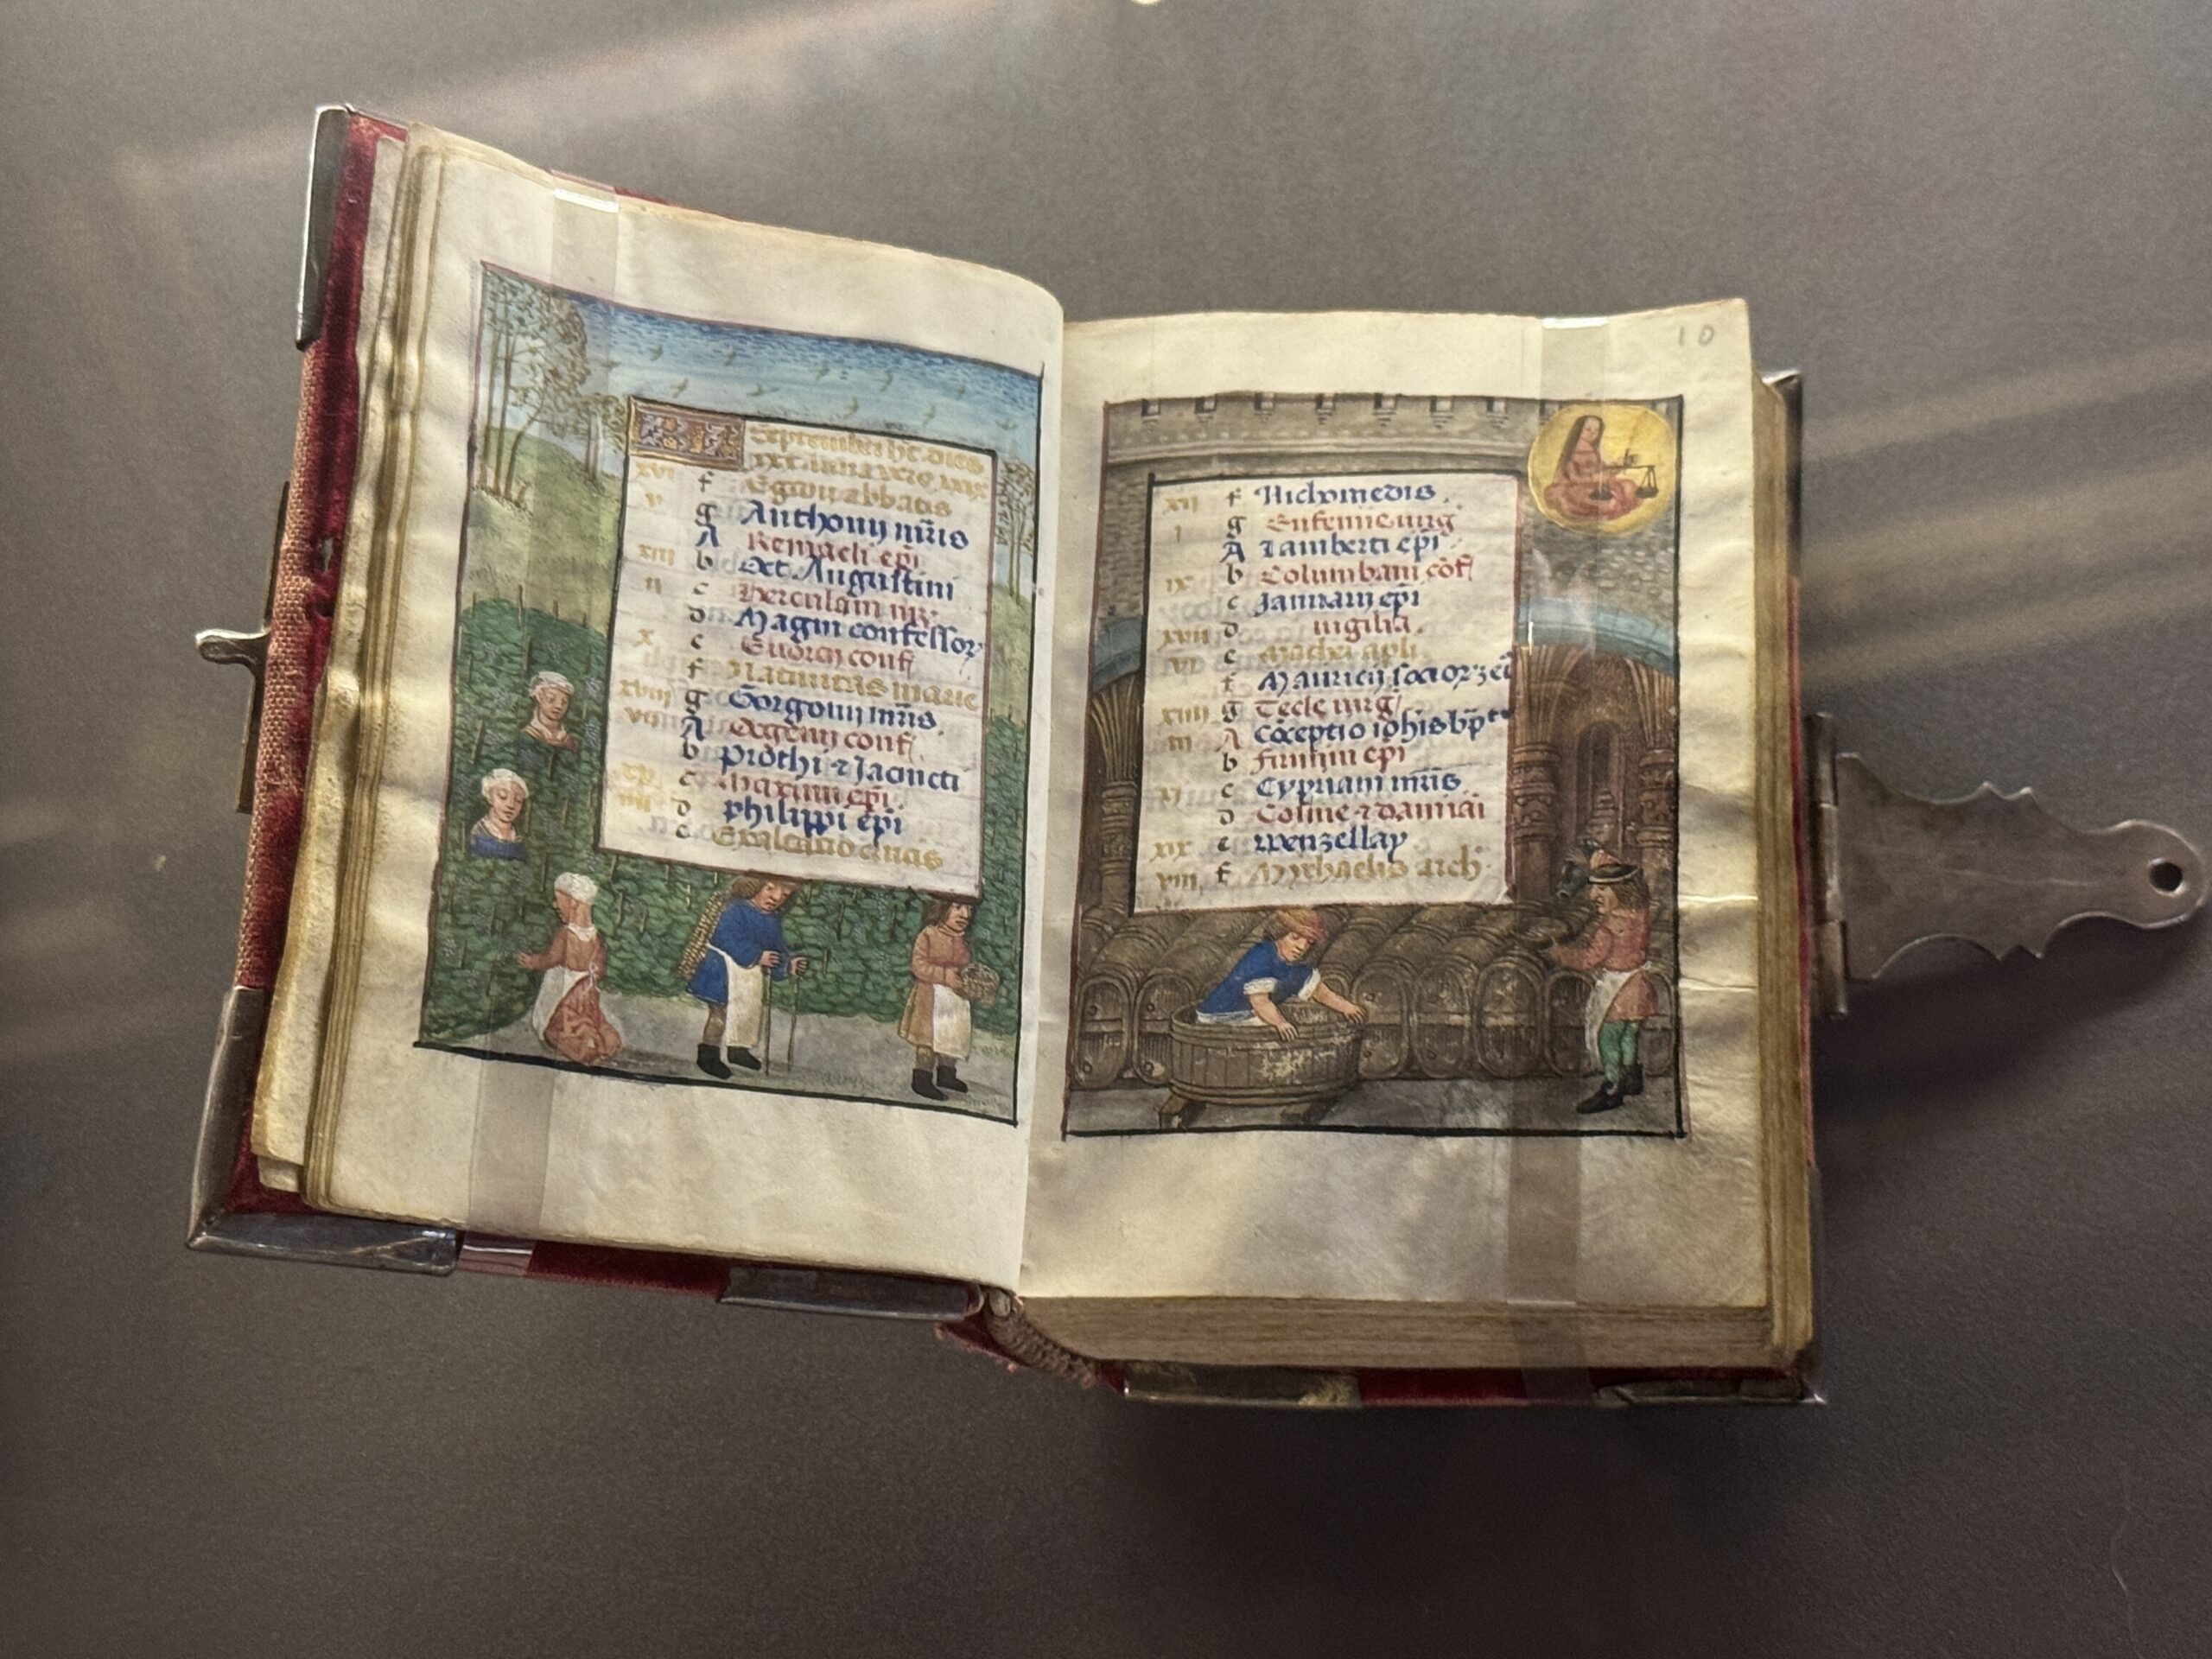 KL Septembris h̄t dies
xxx. luna vero xxix
xvi f Egidii abbatis
v g Anthonij mr̄is
A Remacli ep̄i
xiii b Oct. Augustini
ii c Herculani
d Magni confessor
x e conf
f Nativitas marie
xviii g Gorgonij mr̄is
vii A conf
b prothi ⁊ Jacincti
xv c ep̄i
iiii d philippi ep̄i
e Exaltatio crucis
10
xii f Nichomedis
i g Eufemie virg
A Lamberti ep̄i
ix b Columbani cōf
c Januarij ep̄i
xvii d vigilia
vi e Mathei apl̄i
f Mauricij sociorz eꝰ
xiiii g Tecle virg
iii A Cōceptio ioh̄is bp̄te
b firmini ep̄i
xi c Cypriani mr̄is
d Cosme ⁊ damiai
xix e Wenzellay
viii f Mychaelis arch